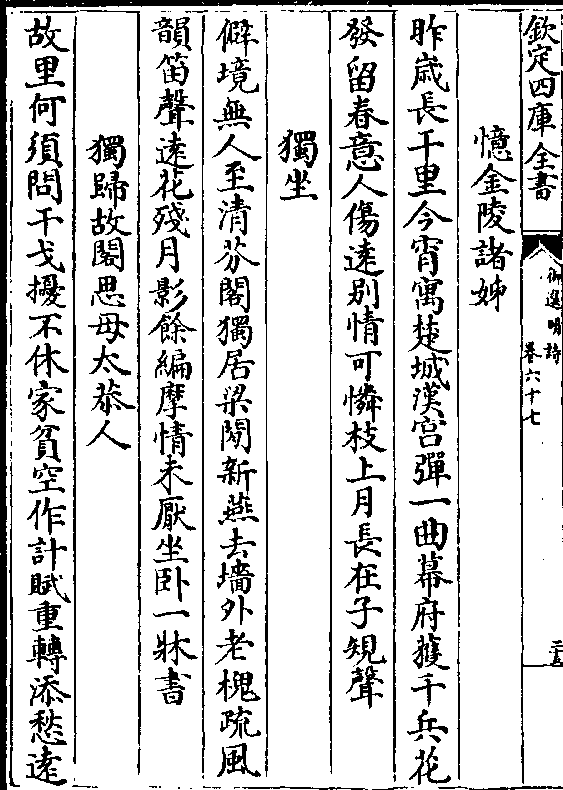 欽定四庫全書
御選明詩
卷六十七
二十五
憶金陵諸姊
昨歳長干里今宵寓楚城漢宮彈一曲幕府獲千兵花
發留春意人傷逺别情可憐枝上月長在子規聲
獨坐
僻境無人至清芬閣獨居梁閒新燕去墻外老槐疏風
韻笛聲逺花殘月影餘編摩情未厭坐卧一牀書
獨歸故閣思母太恭人
故里何須問干戈擾不休家貧空作計賦重轉添愁逺